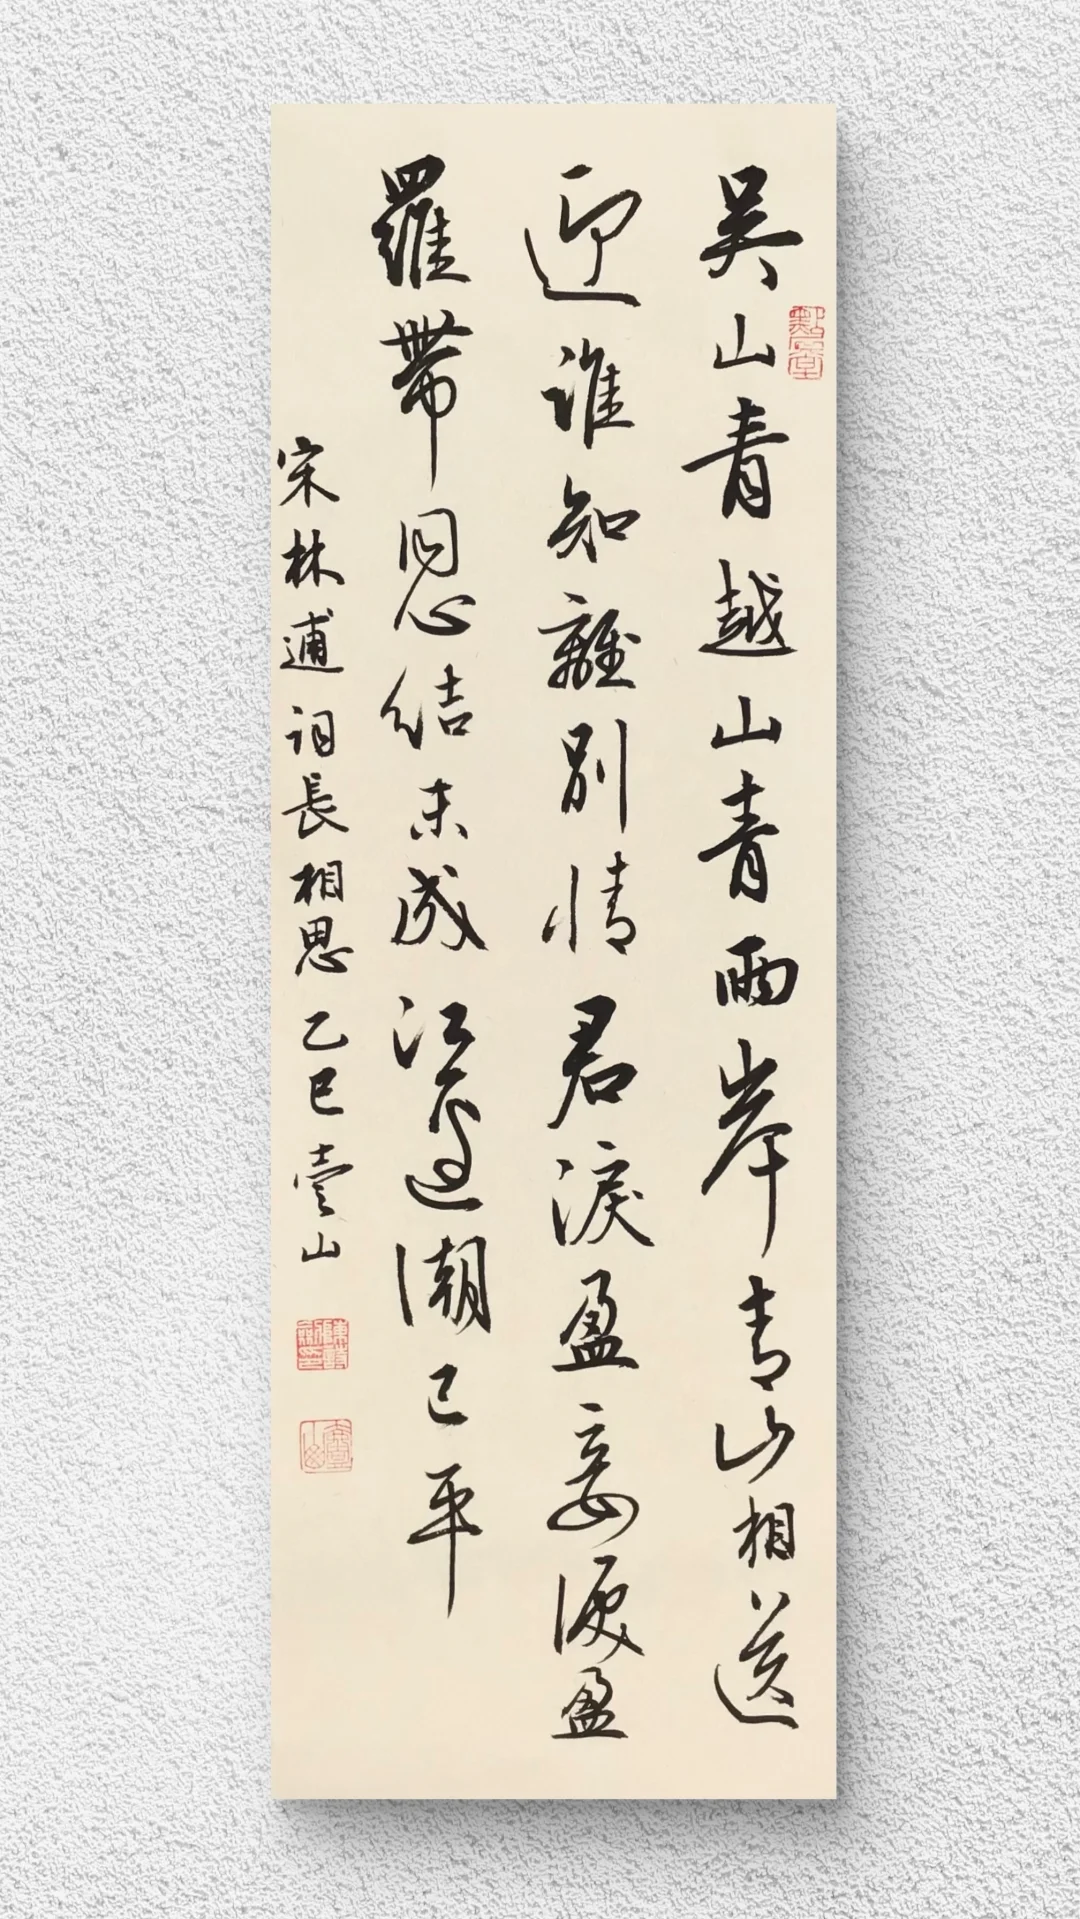 吳山青越山青兩岸青山相送
迎誰知離別情君淚盈妾淚盈
羅帶同心結未成江邊潮已平
宋林逋詞長相思乙巳山